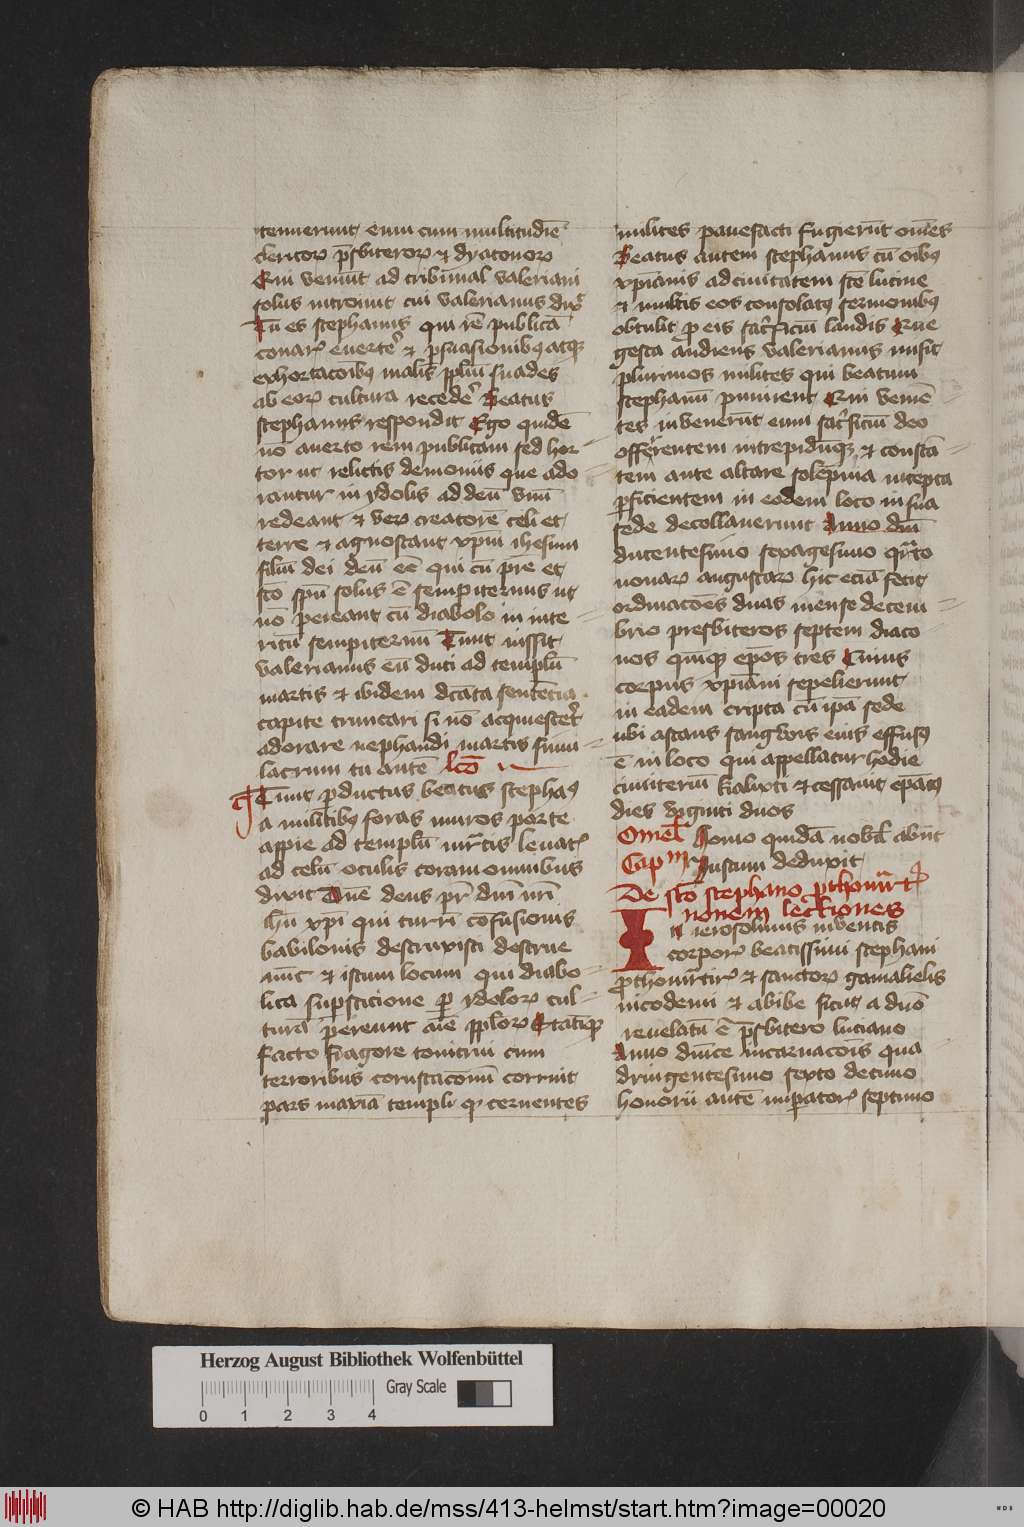 tenuerunt eum cum multitudīe
clericoꝝ p̄sbiteroꝝ ⁊ dyaconoꝝ
Qui veniūt ad tribunal valeriani
solus introiuit cui valerianus dix̄
Tu es stephanus qui rē publicā
conaris euertere ⁊ p̱suasionibꝰ atqꝫ
exhortacōibꝰ malis pplm̄ suades
ab eoꝝ cultura recedere Beatus
stephanus respondit Ego quidē
nō auerto rem publicam sed hor-
tor ut relictis demoniis que ado-
rantur in ydolis ad deū viuū
redeant ⁊ veꝝ creatorē celi et
terre ⁊ agnoscant xpm̄ ihesum
filiū dei deū eē qui cū pr̄e et
sc̄o spū solus ē sempiternus ut
nō pereant cū diabolo in inte-
ritū sempiternū Tunc iussit
valerianus eū duci ad templū
martis ⁊ ibidem dictata sententia
capite truncari si nō acquiesceret
adorare nephandi martis simu-
lacrum tu autē lc̄o
Tunc ꝑductus beatus stephanꝰ
a militibꝰ foras muros porte
appie ad templū martis leuatis
ad celū oculis coram omnibus
dixit Dn̄e deus pr̄ dn̄i nr̄i
ihū xp̄i qui turrī cōfusionis
babilonis destruxisti destrue
nūc ⁊ istum locum qui diabo-
lica sup̱sticione ꝑ ydoloꝝ cul-
turā pereunt aīe pploꝝ Statimqꝫ
facto fragore tonitrui cum
terroribus coruscacionū corruit
pars maxīa templi qd̄ cernentes
milites pauefacti fugierūt om̄es
Beatus autem stephanus cū oībꝰ
xpianis ad ciuitatem sc̄e lucine
⁊ multis eos consolatꝰ sermonibꝰ
obtulit ꝓ eis sacrificiū laudis Que
gesta audiens valerianus misit
plurimos milites qui beatum
stephanū punirent Qui venien-
tes inuenerūt eum sacrificiū deo
offerentem intrepidūqꝫ ⁊ constan-
tem ante altare solēpnia incepta
perficientem in eodem loco in sua
sede decollauerunt Anno dn̄i
ducentesimo sexagesimo qrto
nonaꝝ augustaꝝ hic eciā fecit
ordinacōes duas mense decem-
brio presbiteros septem diaco-
nos quīqꝫ ep̄os tres Cuius
corpus xpiani sepelierunt
in eadem cripta cū ipā sede
ubi astans sangwis eius effusꝰ
ē in loco qui appellatur hodie
cimiteriū kalixti ⁊ cessauit ep̄atꝰ
dies viginti duos
Omel̄ Homo quidā nobil abiit
Capm Justum deduxit
De sc̄o stephano ꝓthomr̄t
nonem lectiones
In ierosolimis inuentis
corporibꝰ beatissimi stephani
ꝓthomartiris ⁊ sanctoꝝ gamalielis
nicodemi ⁊ abibe sicut a deo
reuelatū ē p̄sbitero luciano
Anno dn̄ice incarnacōis qua-
dringentesimo sexto decimo
honorii autē impatoris septimo
Herzog August Bibliothek Wolfenbüttel
Gray Scale
0 1 2 3 4
© HAB http://diglib.hab.de/mss/413-helmst/start.htm?image=00020
WDB